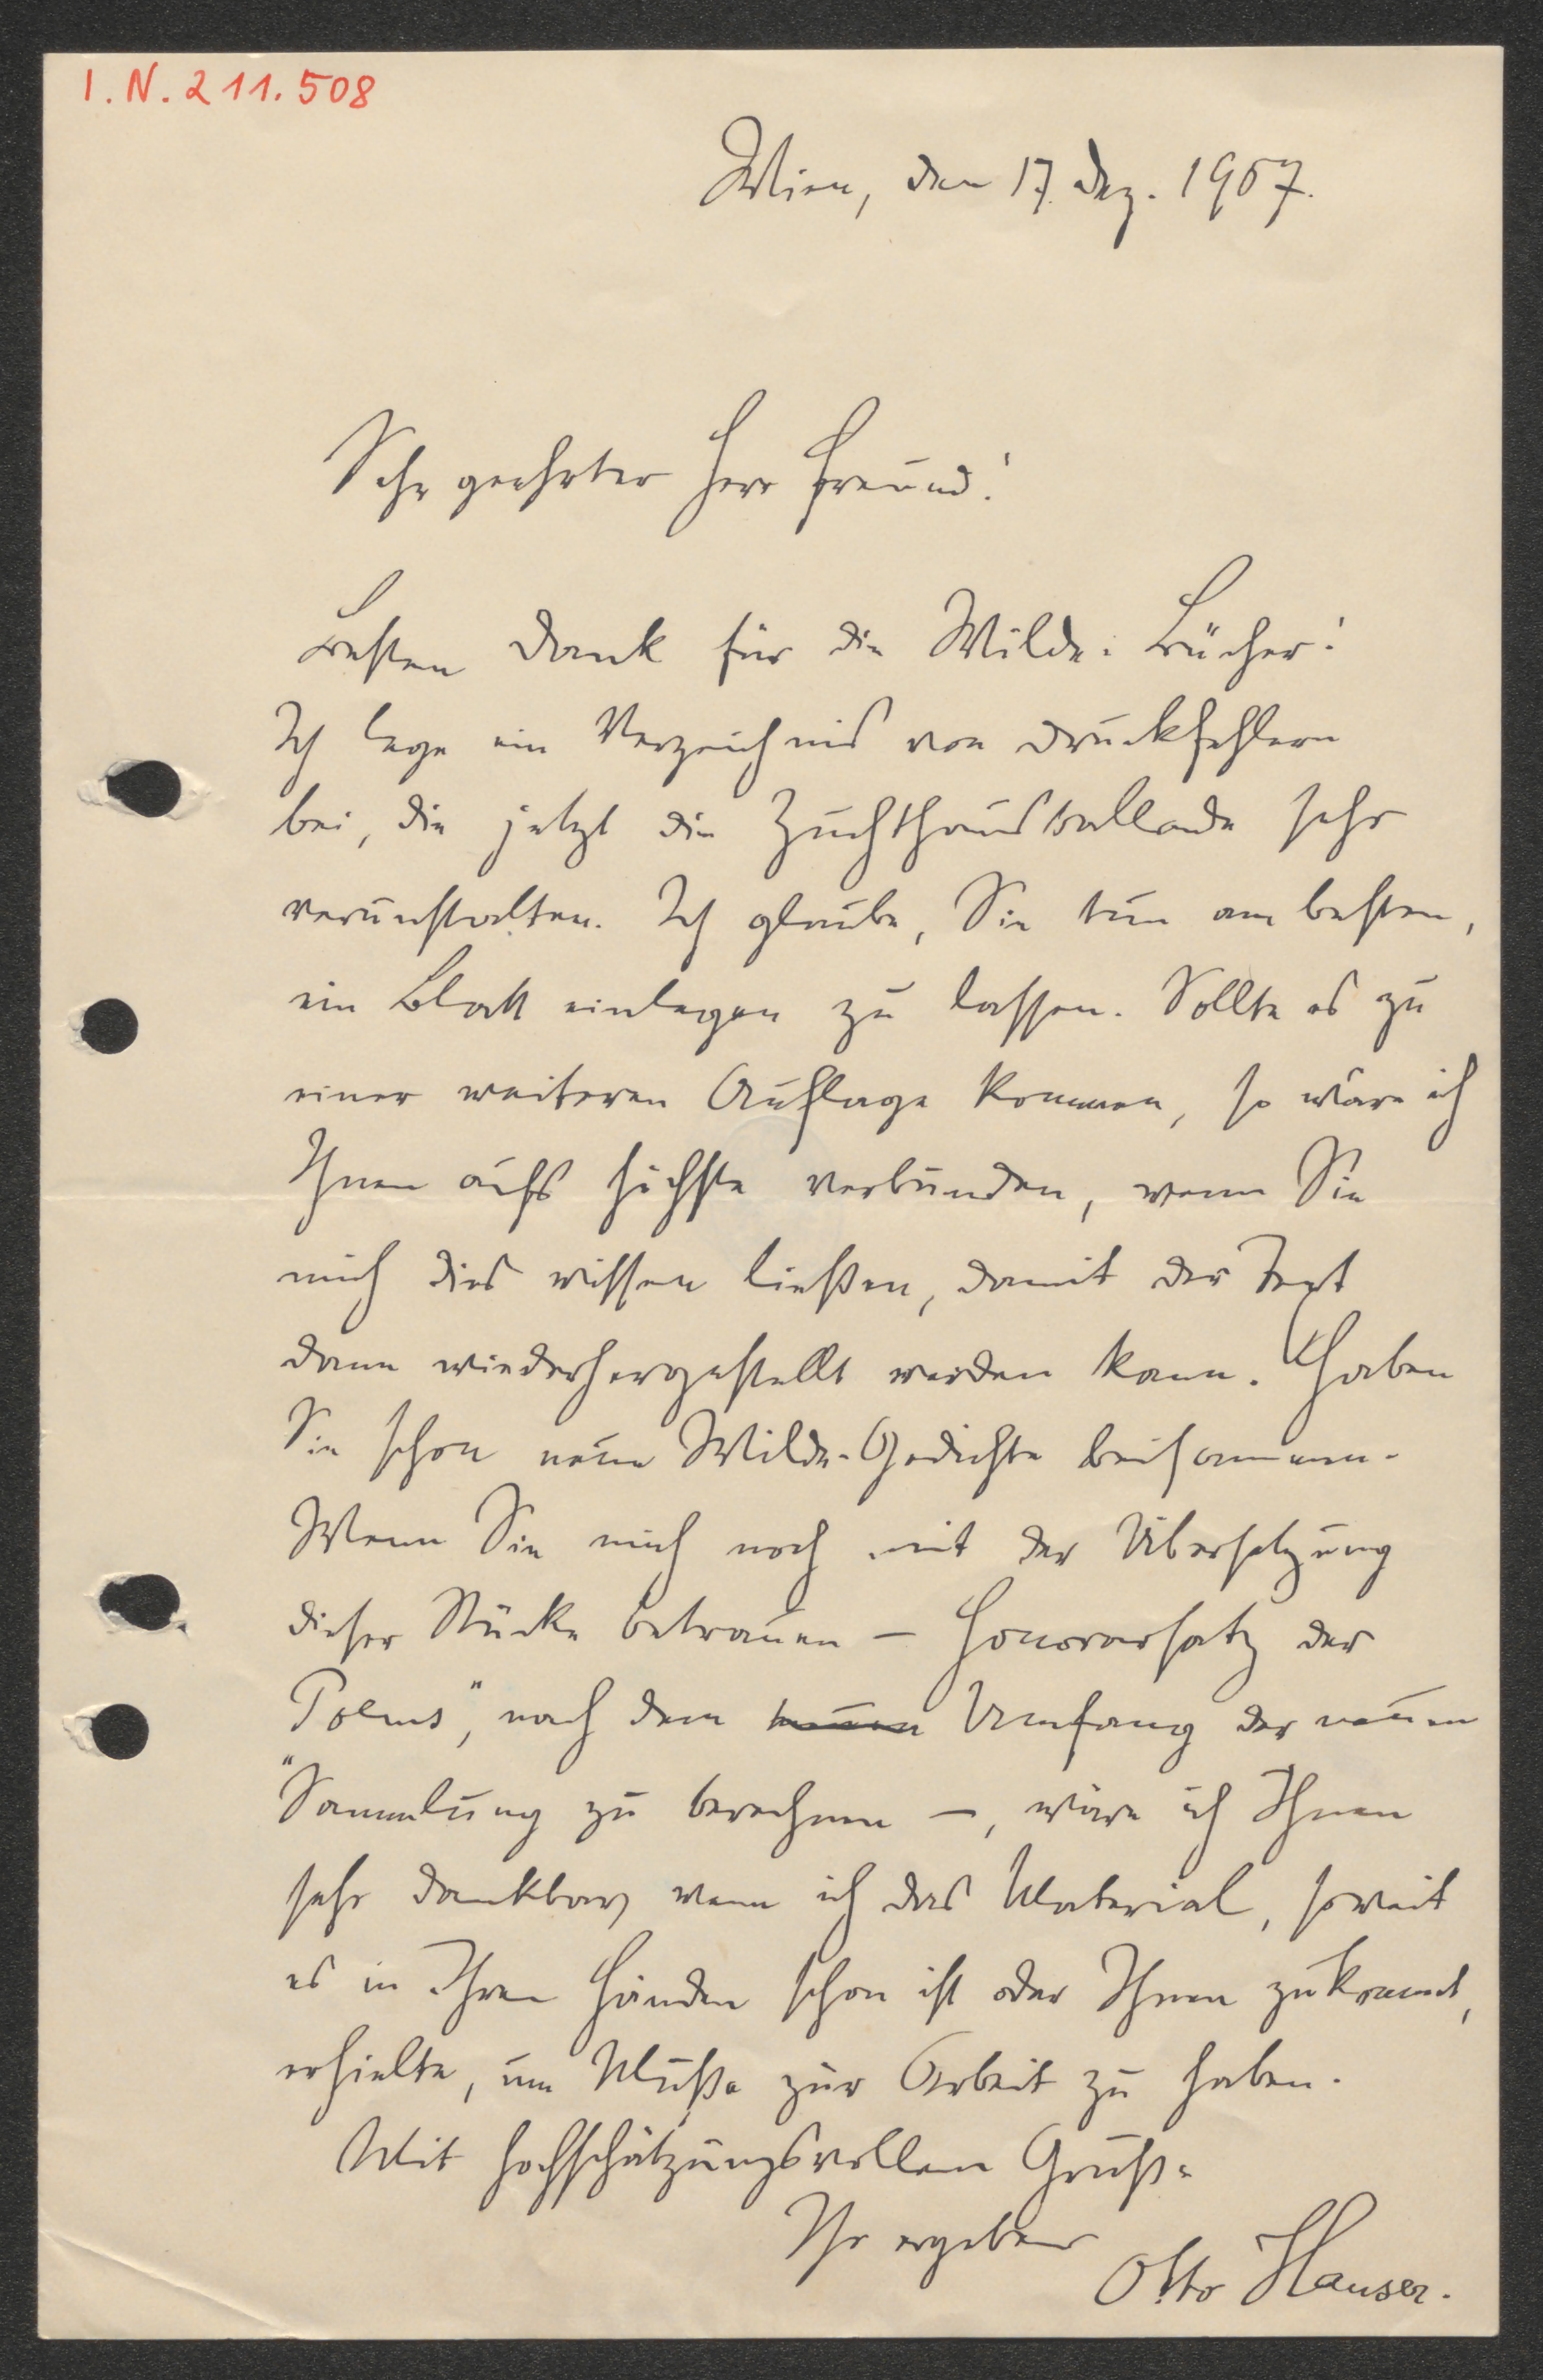 I. N. 211.508
Wien, den 17. Dez. 1907.
Sehr geehrter Herr Freund!
Besten Dank für die Wilde-Bücher!
Ich lege ein Verzeichnis von Druckfehlern
bei, die jetzt die Zuchthausballade sehr
verunstalten. Ich glaube, Sie tun am besten,
ein Blatt einlegen zu lassen. Sollte es zu
einer weiteren Auflage kommen, so wäre ich
Ihnen aufs höchste verbunden, wenn Sie
mich dies wissen ließen, damit der Text
dann wiederhergestellt werden kann. Haben
Sie schon neue Wilde-Gedichte beisammen.
Wenn Sie mich noch mit der Übersetzung
dieser Stücke betrauen – Honorarsatz der
Poems", nach dem neuen Umfang der neuen
"Sammlung zu berechnen –, wäre ich Ihnen
sehr dankbar, wenn ich das Material, soweit
es in Ihren Händen schon ist oder Ihnen zukommt,
erhielte, um Muße zur Arbeit zu haben.
Mit hochschätzungsvollem Gruße
Ihr ergebener
Otto Hauser.